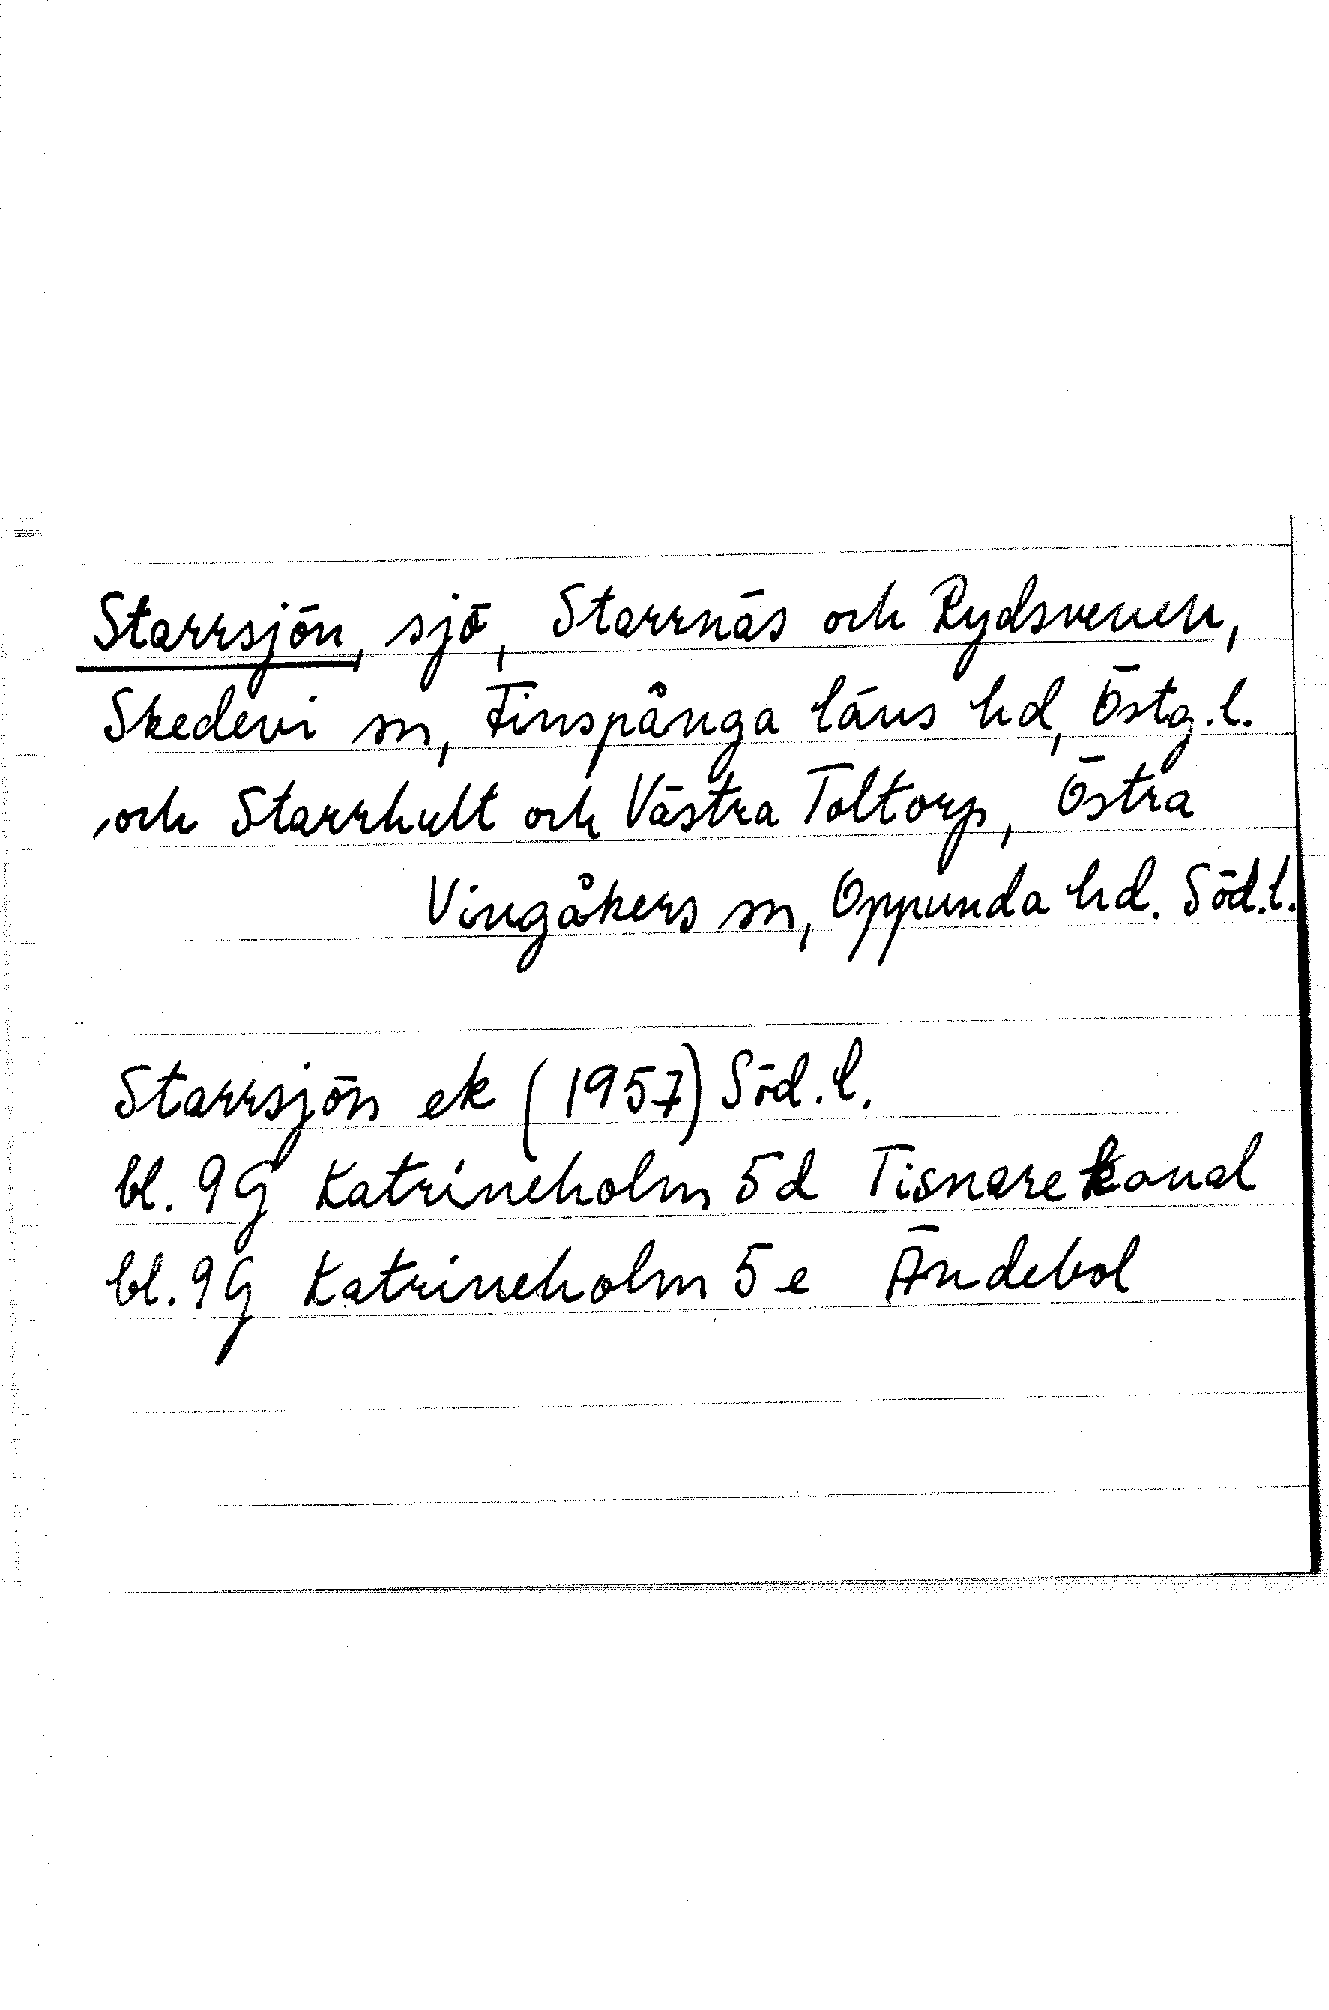 Starrsjön, sjö, Starrnäs och Rydsvenen,
Skedevi sn, Finspånga läns hd, Östg.l.
och Starrhult och Västra Toltorp, Östra
Vingåkers sn, Oppunda hd. Söd.l.
Starrsjön ek (1957) Söd.l.
bl. 9G Katrineholm 5d Tisnare kanal
bl. 9G Katrineholm 5e Ändebol